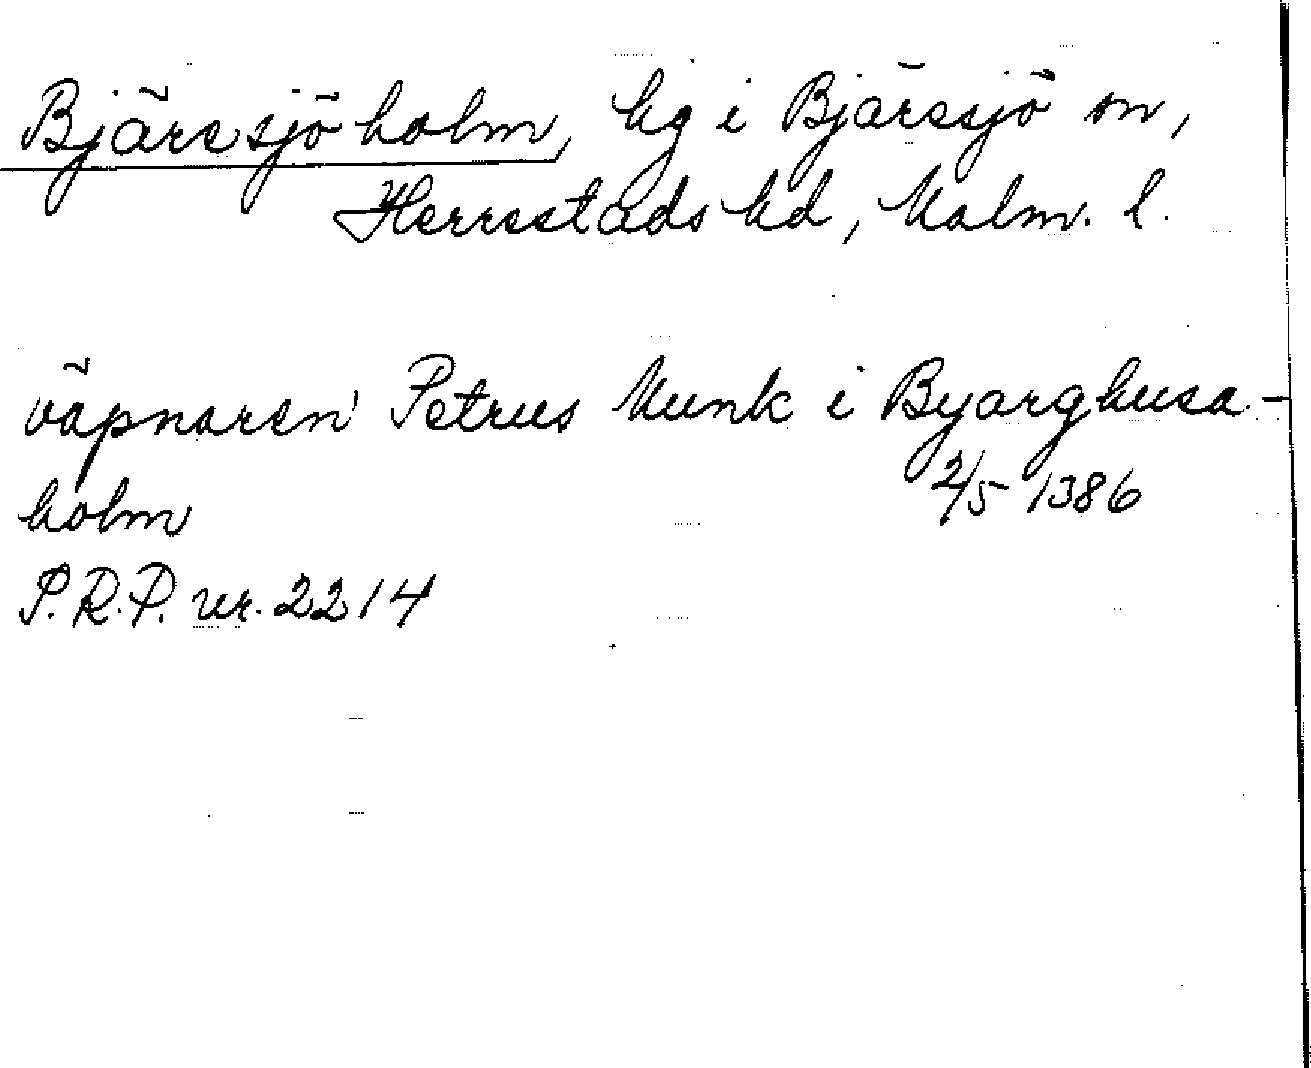 Bjärsjöholm, hg i Bjäresjö sn,
Herrestads hd, Malm. l.
väpnaren Petrus Munk i Byarghusa-
holm 2/5 1386
P.R.P. nr. 2214